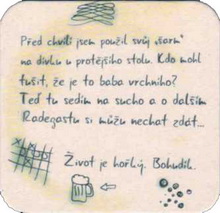 Před chvílí jsem použil svůj "šarm"
na dívku u protějšího stolu. Kdo mohl
tušit, že je to baba vrchního?
Teď tu sedím na sucho a o dalším
Radegastu si můžu nechat zdát...
Život je hořký. Bohudík.